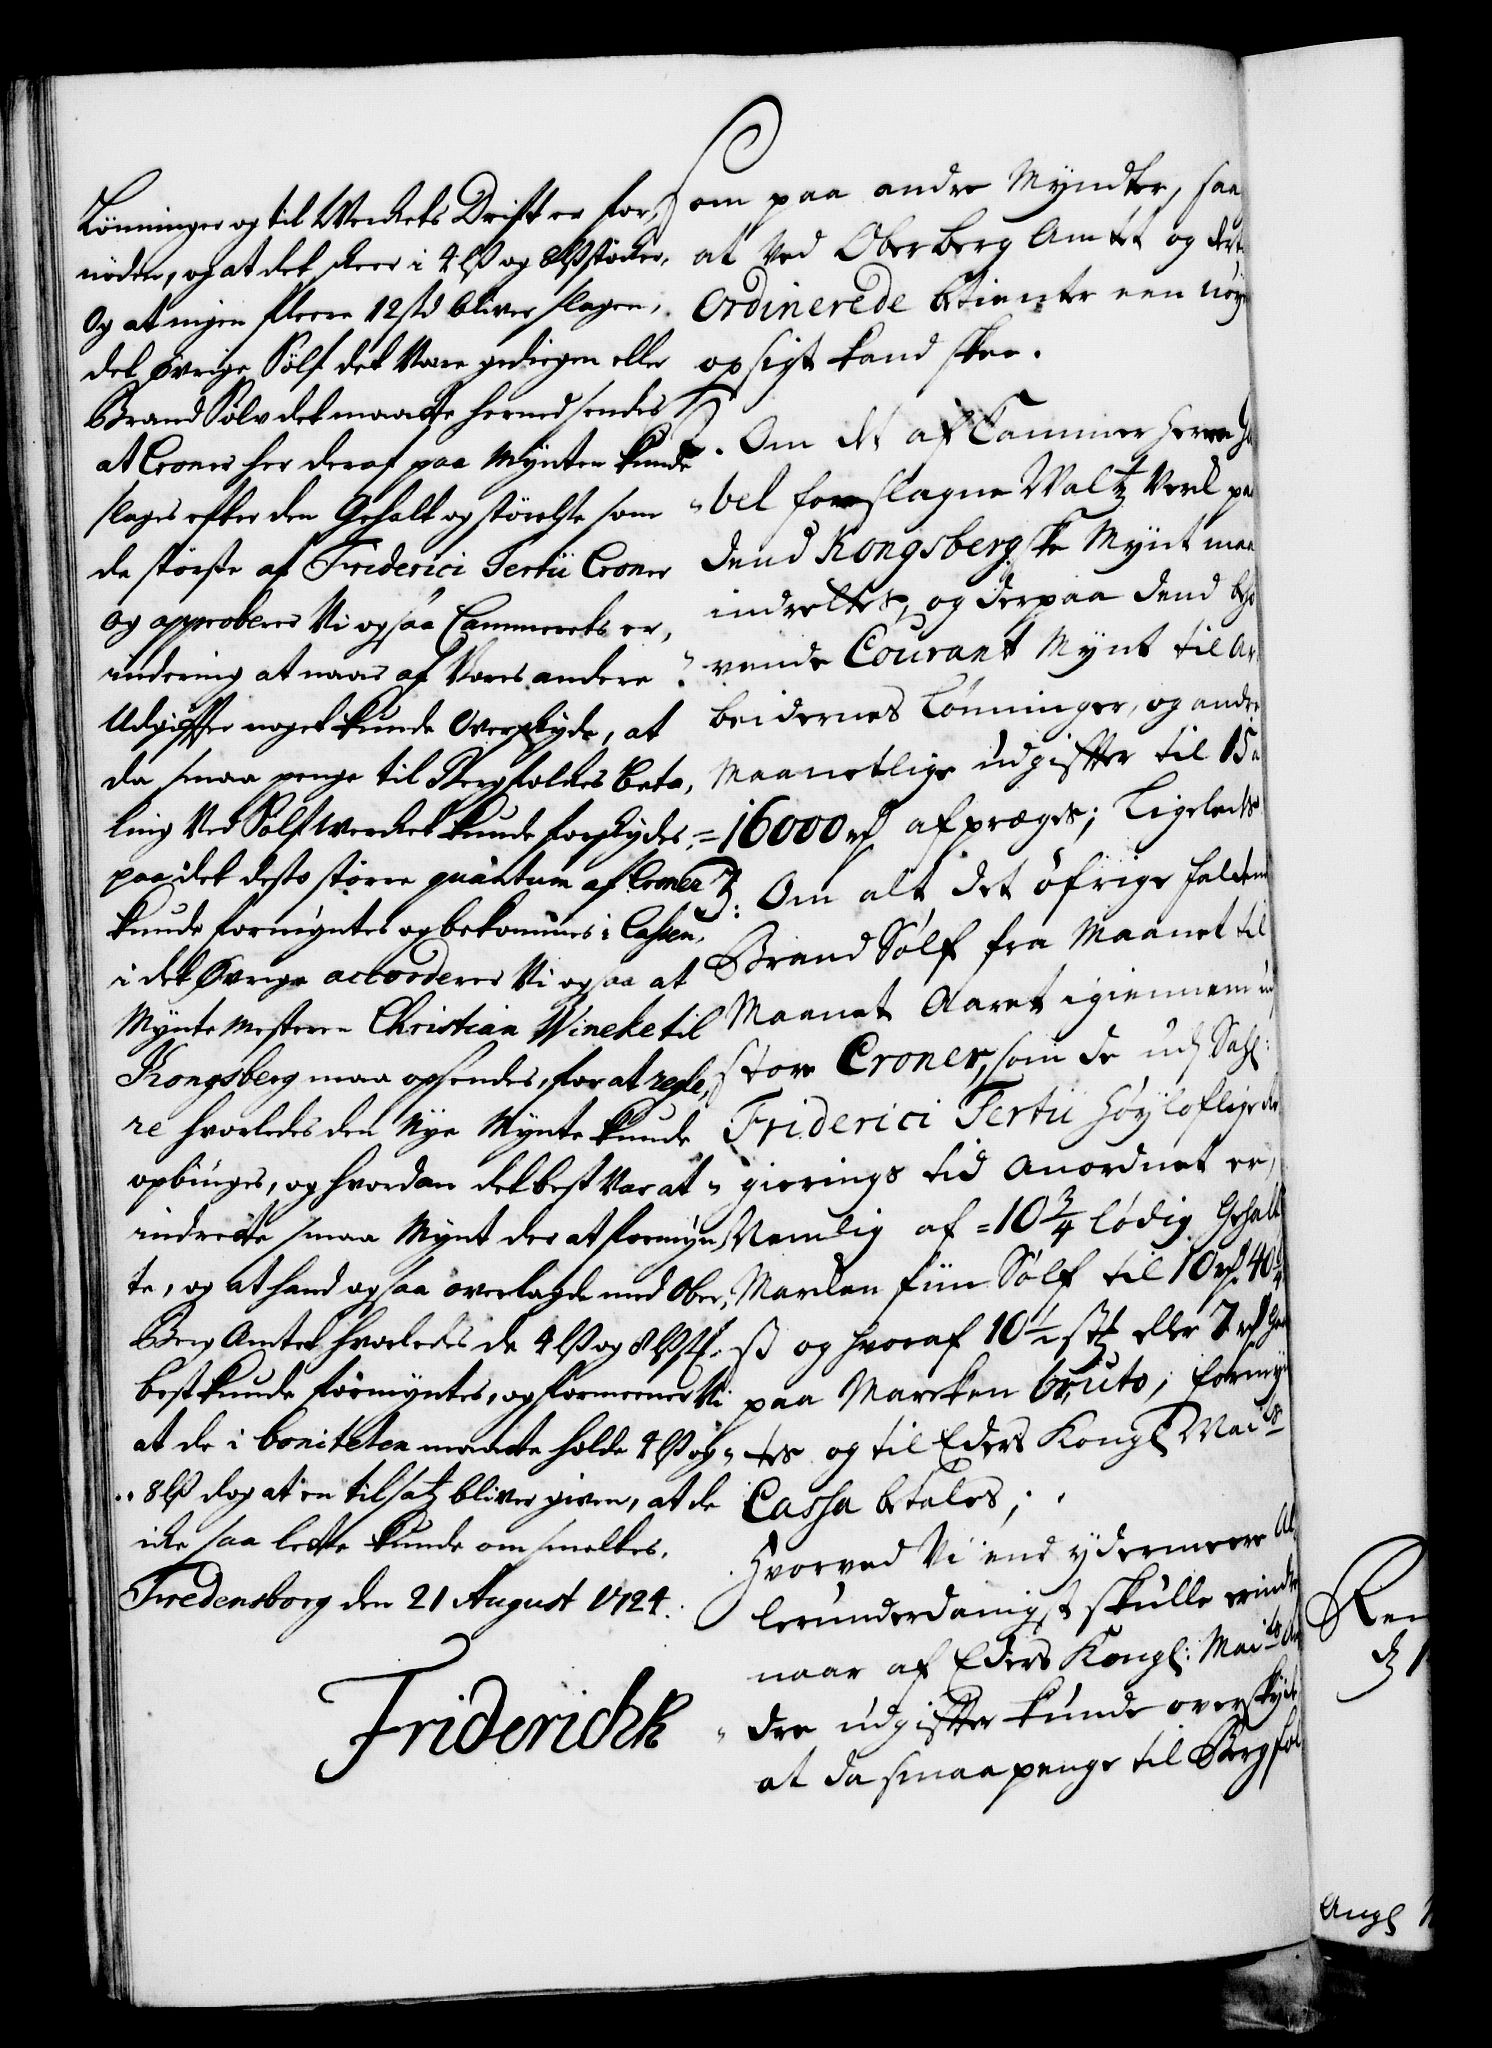 Lønninger og til Werckets Drift er for„
nöden, og at det skeer i 4 lß og 8 lß støcker,
Og at ingen fleere 12 sk bliver slagen,
det øvrige Sölf det være gediegen eller
Brand Sölv det maatte herned sendes
at Croner her deraf paa Mynten kunde
slages efter den Gehalt og störelse som
de störste af Friderici Tertii Croner
og approberer Vi ogsaa Cammerets er„
indering at naar af Vores andere
Udgiffter noget kunde Overskyde, at
da smaa penge til Bergfolckes beta„
ling Ved Sölfwercket kunde forskydes,
paa det desto större quantum af Croner
kunde formyntes og bekommes i Cassen,
i det Øvrige accorderer Vi ogsaa at
Mynte Mesteren Christian Wineke til
Kongsberg maa opsendes, for at regle„
re hvorledes den Nye Mynte kunde
opbünges, og hvordan det best Var at
indrette smaa Mynt der at formyn„
te, og at hand ogsaa overlagde med Ober„
Berg Amtet hvorledes de 4 lß og 8 lß st:
best kunde formyntes, og formeener Vi
at de i boniteten maatte holde 4 lß og
8 lß dog at en tilsatz bliver given, at de
icke saa lette kunde omsmeltes.
Fredensborg den 21 August 1724.
Friderichk
Som paa andre Myndter, saa
at Ved Oberberg Amtet og
Ordinerede betiente een nöye
opsigt kand skee.
2. Om det af Cammer Herre Ga
bel foreslagne Waltz Verk paa
dend Kongsbergske Mynt maa
indrettes, og derpaa dend beho
vende Courant Mynt til Ar„
beidernes Lønninger, og andre
Maanetlige udgiffter til 15 a
16000 rd afpræges; Ligeledes
3: Om alt det öfrige faldene
Brand Sölf fra Maanet til
Maanet Aaret igiennem ud
store Croner, som de udj Sahl:
Friderici Tertii Höyloflige Re
gierings tid anordnet er,
Nemlig af 10 3/4 lödig Gehalt
Marcken fiin Sölf til 10 rd 40
ß og hvoraf 10 1/2 st eller 7 rd
paa Marcken bruto, formyn
tes og til Eders Kongl Maits
Cassa betales;
Hvorved Vi end ydermeere Al„
lerunderdanigst skulle erindre
naar af Eders Kongl: Maits An
dre udgiffter kunde overskyde
at da smaa penge til Bergfol